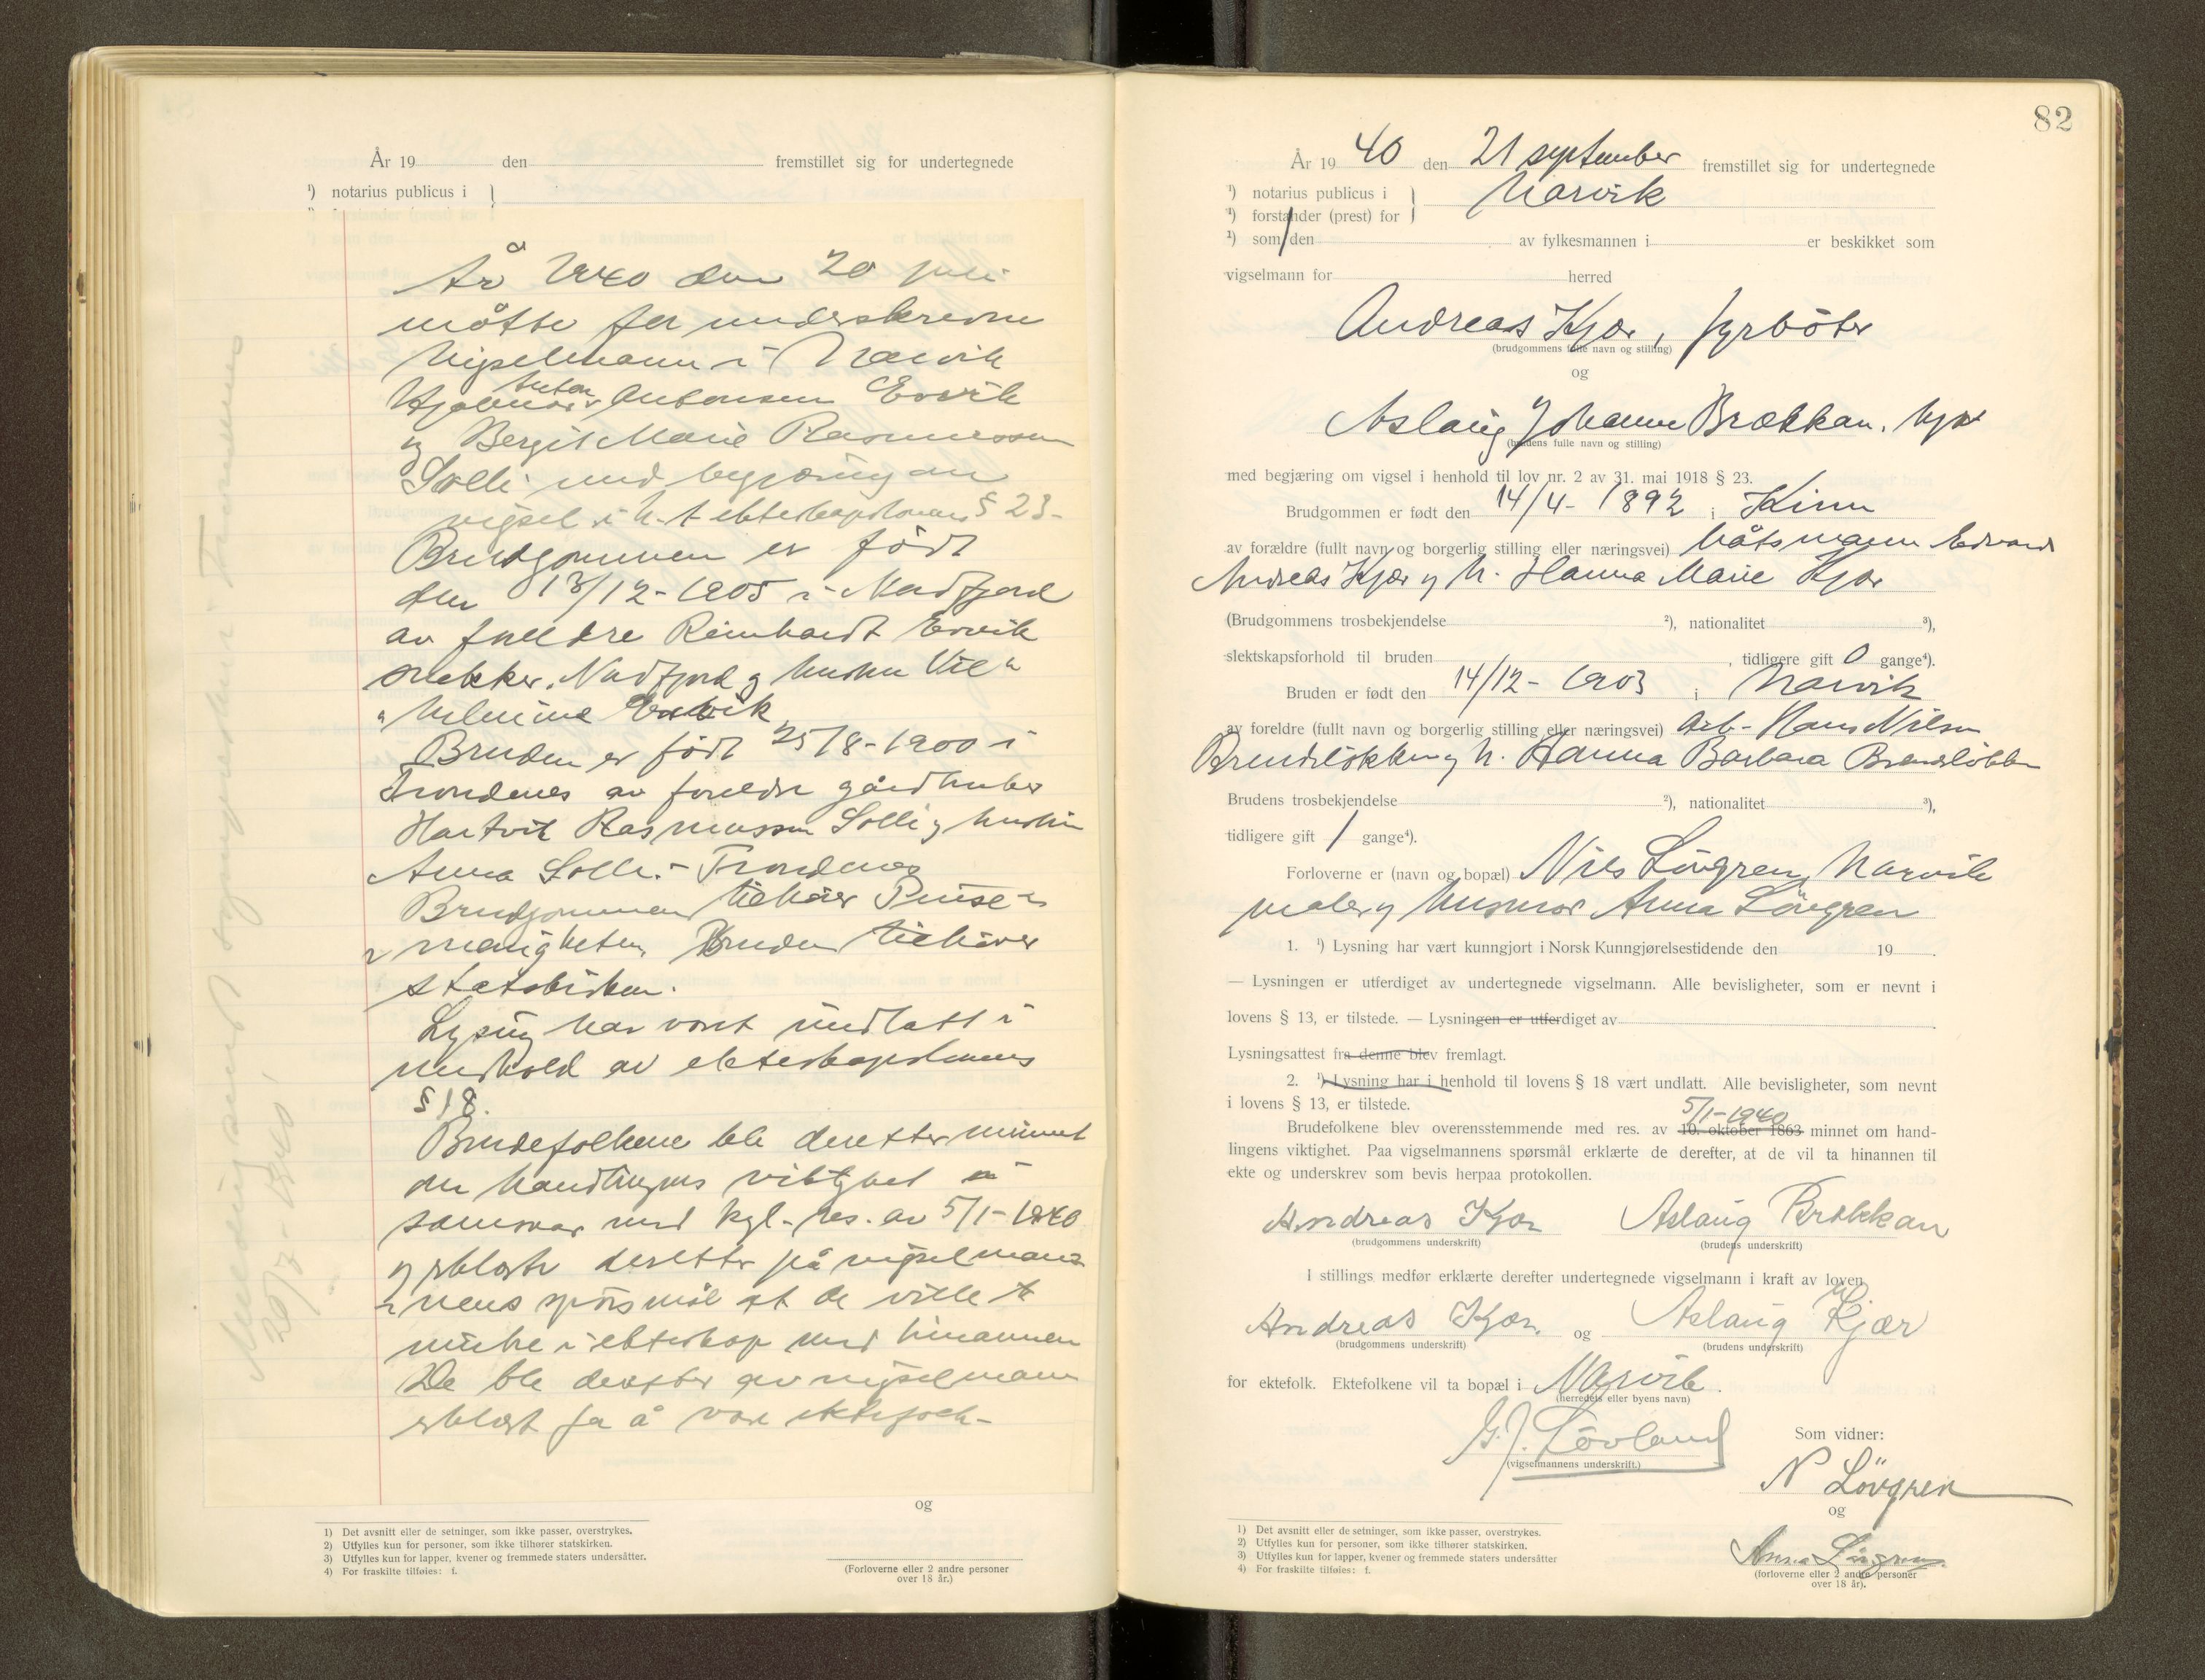 År 19 den fremstillet sig for undertegnede
¹) notarius publicus i
År 1940 den 20 juli
møtte for underskrevne
Vigselmann i Narvik
Anton
Hjalmar Antonsen Ervik
og Bergit Marie Rasmussen
Solli med begjæring om
vigsel i h.t ekteskapslovens § 23-
Brudgommen er født
den 13/12-1905 i Nordfjord
av foreldre Reinhardt Ervik
snekker, Nordfjord og hustru Vil-
helmine Ervik
Bruden er født 25/8-1900 i
Trondenes av foreldre gårdbruker
Hartvik Rasmussen Solli og hustru
Anna Solli. - Trondenes
Brudgommen tilhører Pinse-
menigheten, Bruden tilhører
statskirken.
Lysing har vært undlatt i
medhold av ekteskapslovens
§ 18.
Brudefolkene ble deretter minnet
om handlingens viktighet i
samsvar med kgl. res. av 5/1-1940
og erklærte deretter på vigselman-
nens spørsmål at de ville
i ekteskap med hinannen
De ble deretter av vigselmann
erklært for å være ektefolk-
Melding sendt sognepresten i Trondenes
20/7-1940.
og
1) Det avsnitt eller de setninger, som ikke passer, overstrykes.
2) Utfylles kun for personer, som ikke tilhører statskirken.
3) Utfylles kun for lapper, kvener og fremmede staters undersåtter.
4) For fraskilte tilføies: f.
(Forloverne eller 2 andre personer
over 18 år.)
82
År 1940 den 21 september fremstillet sig for undertegnede
¹) notarius publicus i Narvik
¹) forstander (prest) for
¹) som den av fylkesmannen i er beskikket som
vigselmann for herred
Andreas Kjær, fyrbøter
(brudgommens fulle navn og stilling)
og
Aslaug Johanne Brækkan.
(brudens fulle navn og stilling)
med begjæring om vigsel i henhold til lov nr. 2 av 31. mai 1918 § 23.
Brudgommen er født den 14/4-1892 i Kinn
av forældre (fullt navn og borgerlig stilling eller næringsvei) båtsmann Edvard
Andreas Kjær og h. Hanna Marie Kjær
(Brudgommens trosbekjendelse ²), nationalitet ³),
slektskapsforhold til bruden , tidligere gift 0 gange⁴).
Bruden er født den 14/12-1903 i Narvik
av foreldre (fullt navn og borgerlig stilling eller næringsvei) Arb. Hans Nilsen
Brendløkken og h. Hanna Barbara Brendløkken
Brudens trosbekjendelse ²), nationalitet ³),
tidligere gift 1 gange⁴).
Forloverne er (navn og bopæl) Nils Lövgren, Narvik
maler og husmor Anna Lövgren
1. ¹) Lysning har vært kunngjort i Norsk Kunngjørelsestidende den 19 .
— Lysningen er utferdiget av undertegnede vigselmann. Alle bevisligheter, som er nevnt i
lovens § 13, er tilstede. — Lysningen er utferdiget av .
Lysningsattest fra denne blev fremlagt.
2. ¹) Lysning har i henhold til lovens § 18 vært undlatt. Alle bevisligheter, som nevnt
i lovens § 13, er tilstede.
5/1-1940
Brudefolkene blev overensstemmende med res. av 10. oktober 1863 minnet om hand-
lingens viktighet. Paa vigselmannens spørsmål erklærte de derefter, at de vil ta hinannen til
ekte og underskrev som bevis herpaa protokollen.
Andreas Kjær Aslaug Brækkan
(brudgommens underskrift) (brudens underskrift)
I stillings medfør erklærte derefter undertegnede vigselmann i kraft av loven
Andreas Kjær og Aslaug Kjær
(brudgommens underskrift) (brudens underskrift)
for ektefolk. Ektefolkene vil ta bopæl i Narvik.
(herredets eller byens navn)
G. J. Lövland
(vigselmannens underskrift.)
Som vidner:
N Lövgren
og
Anna Lövgren
(forloverne eller 2 andre personer
over 18 år).
1) Det avsnitt eller de setninger, som ikke passer, overstrykes.
2) Utfylles kun for personer, som ikke tilhører statskirken.
3) Utfylles kun for lapper, kvener og fremmede staters undersåtter
4) For fraskilte tilføies: f.